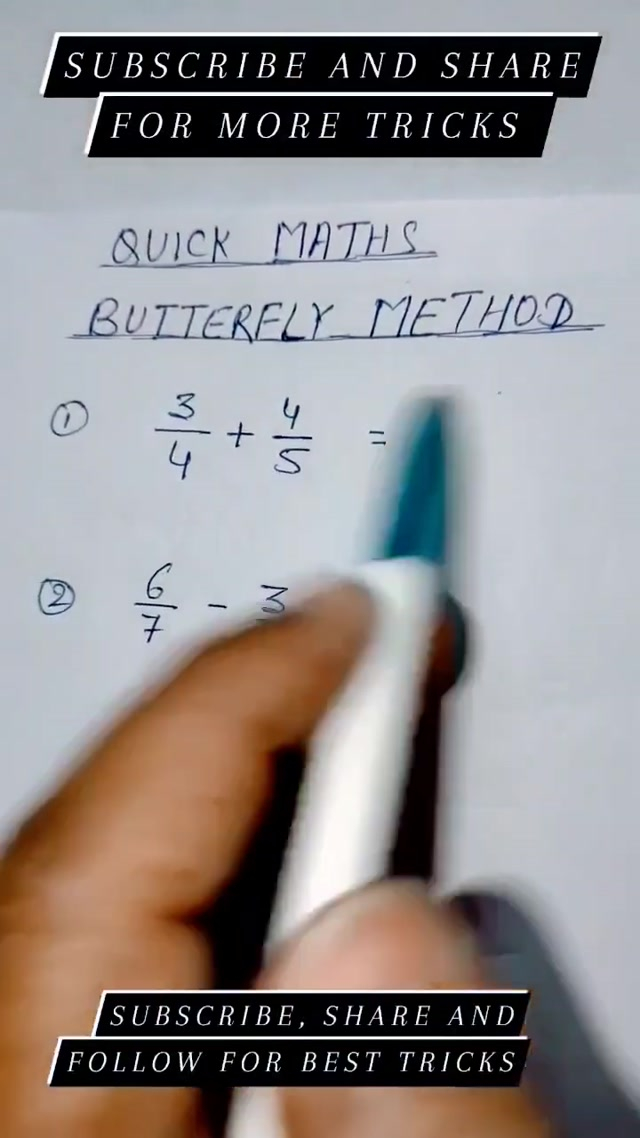 SUBSCRIBE AND SHARE
FOR MORE TRICKS
QUICK MATHS
BUTTERFLY METHOD
① 3/4 + 4/5 =
② 6/7 - 3
SUBSCRIBE, SHARE AND
FOLLOW FOR BEST TRICKS